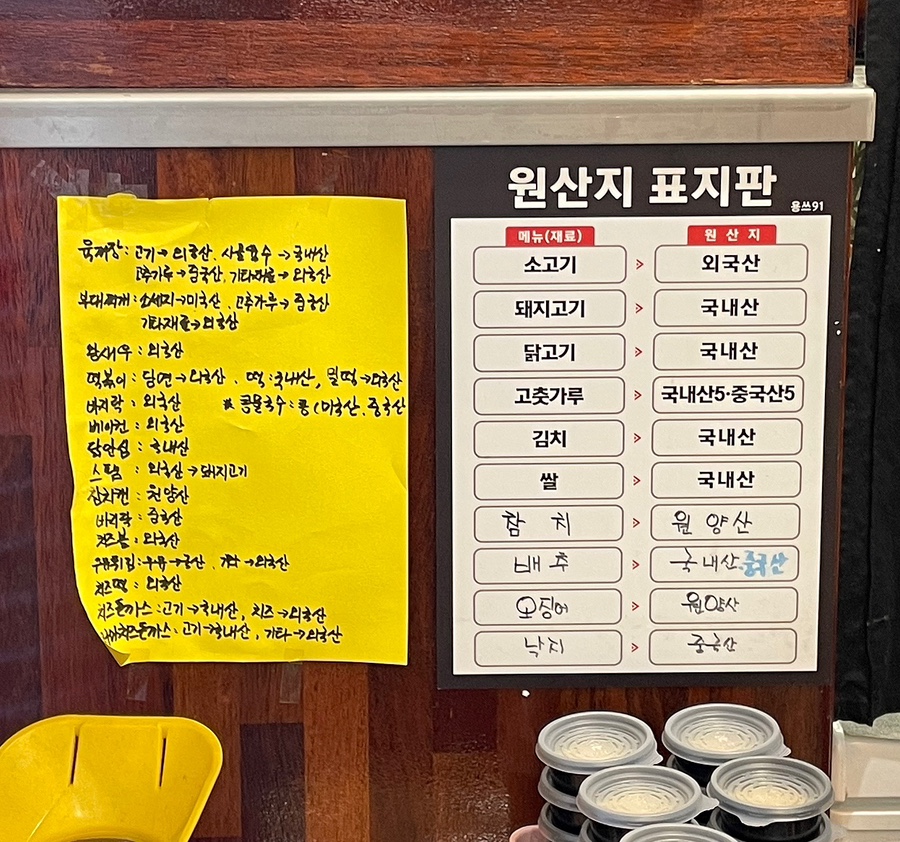 육개장: 고기→외국산. 사골육수→국내산
고추가루→중국산, 기타재료→외국산
부대찌개: 소세지→미국산. 고추가루→중국산
기타재료→외국산
왕새우: 외국산
떡볶이: 당면→외국산. 떡:국내산, 밀떡→외국산
바지락: 외국산
※ 콩물국수: 콩(미국산. 중국산
베이컨: 외국산
닭안심: 국내산
스팸: 외국산→돼지고기
참치캔: 원양산
바지락: 중국산
치즈볼: 외국산
→외국산
치즈떡: 외국산
치즈돈까스: 고기→국내산, 치즈→외국산
치즈돈까스: 고기→국내산, 기타→외국산
원산지 표지판
용쓰91
메뉴(재료) 원산지
소고기 > 외국산
돼지고기 > 국내산
닭고기 > 국내산
고춧가루 > 국내산5·중국산5
김치 > 국내산
쌀 > 국내산
참치 > 원양산
배추 > 국내산 중국산
오징어 > 원양산
낙지 > 중국산